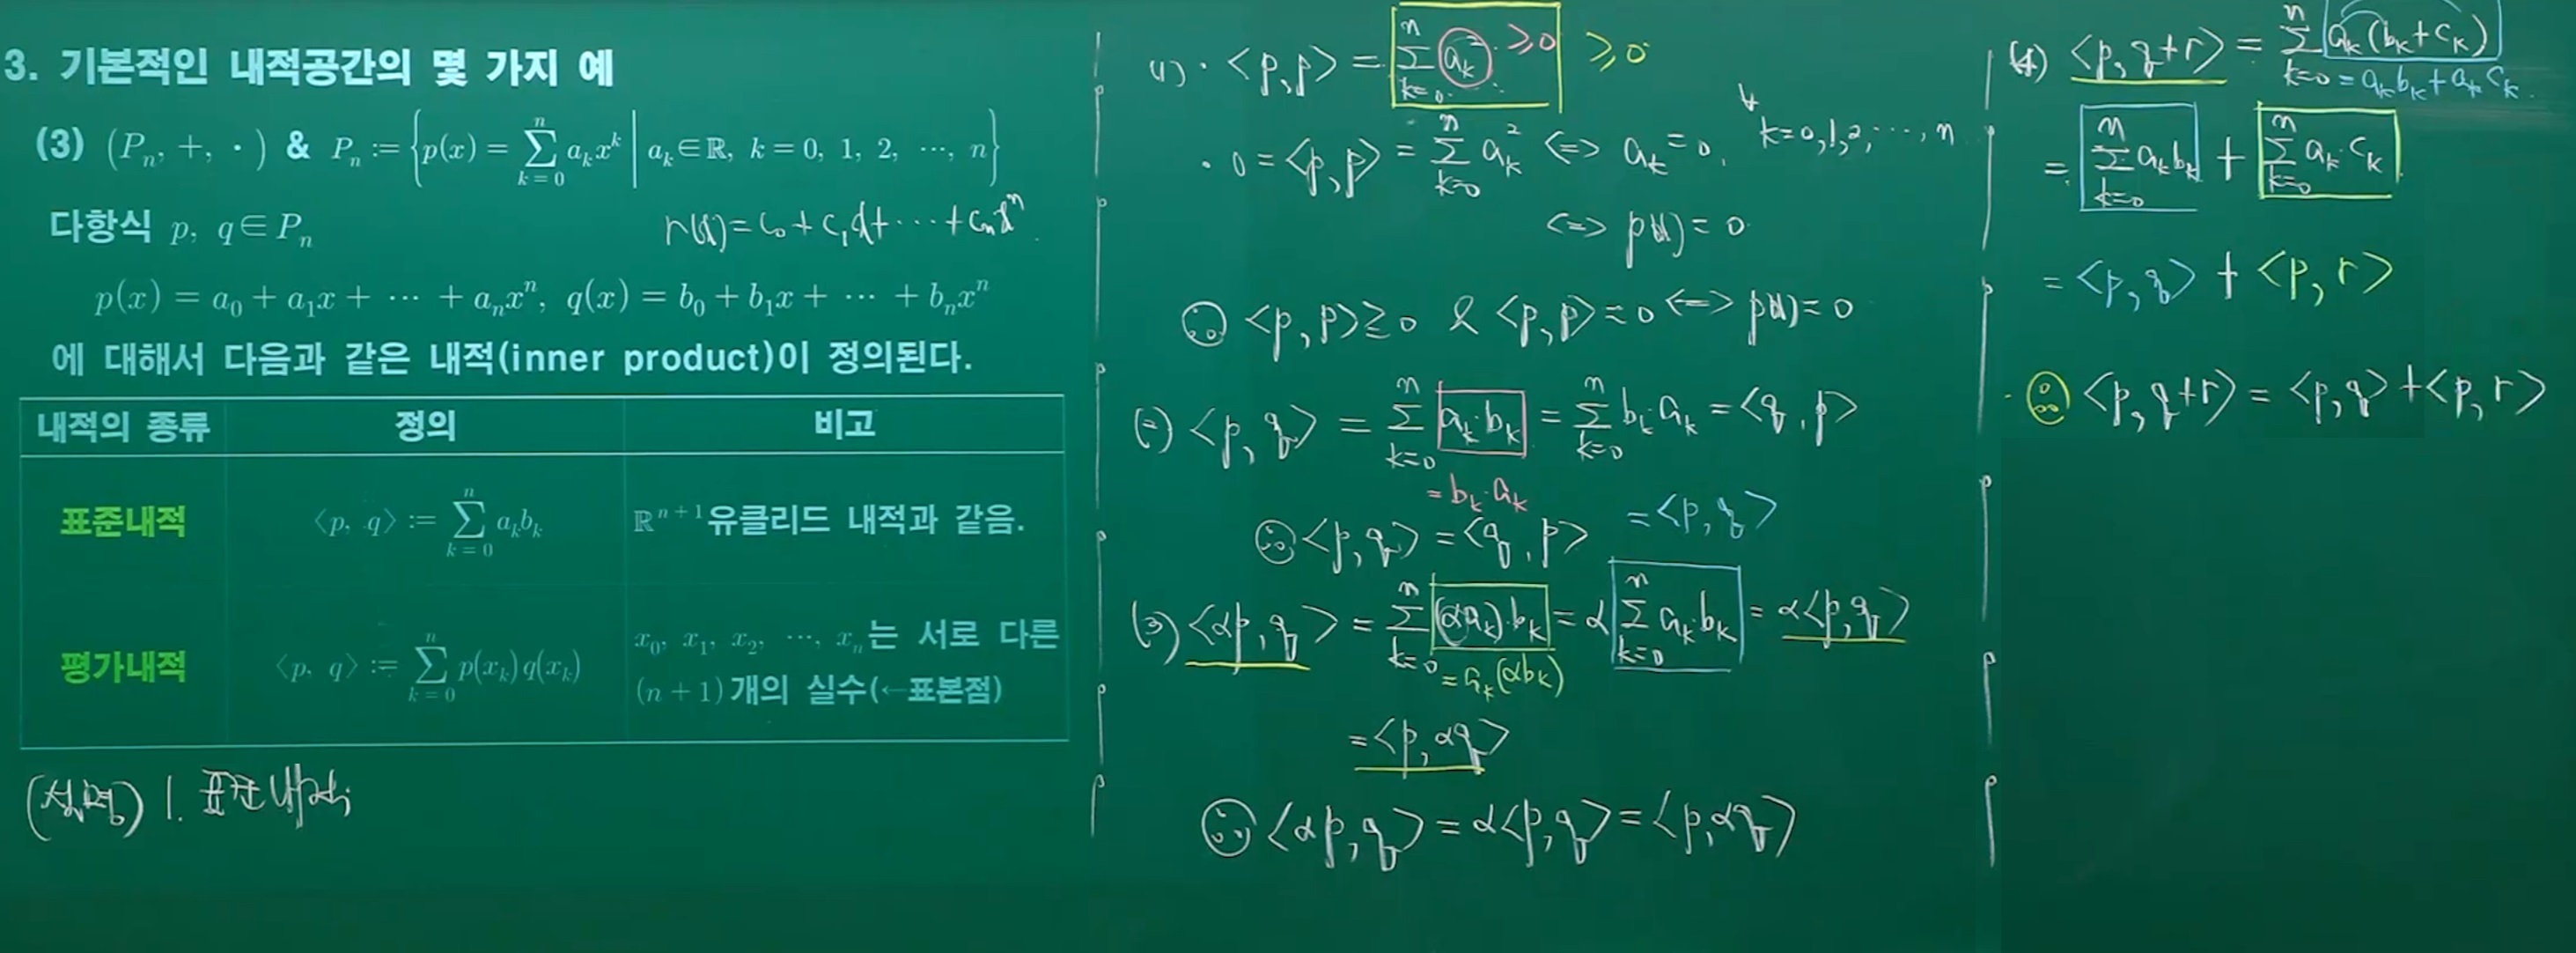 3. 기본적인 내적공간의 몇 가지 예
(3) (Pₙ, +, ·) & Pₙ := {p(x) = ∑_{k=0}^{n} aₖxᵏ | aₖ∈ℝ, k = 0, 1, 2, ⋯, n}
다항식 p, q∈Pₙ
r(x) = c₀ + c₁x + ⋯ + cₙxⁿ.
p(x) = a₀ + a₁x + ⋯ + aₙxⁿ, q(x) = b₀ + b₁x + ⋯ + bₙxⁿ
에 대해서 다음과 같은 내적(inner product)이 정의된다.
내적의 종류 정의 비고
표준내적 ⟨p, q⟩ := ∑_{k=0}^{n} aₖbₖ ℝⁿ⁺¹유클리드 내적과 같음.
평가내적 ⟨p, q⟩ := ∑_{k=0}^{n} p(xₖ)q(xₖ) x₀, x₁, x₂, ⋯, xₙ는 서로 다른
(n+1)개의 실수(←표본점)
(설명) 1. 표준내적;
(1) · <p,p> = ∑_{k=0}^{n} aₖ² ≥0 ≥0
· 0 = <p,p> = ∑_{k=0}^{n} aₖ² <=> aₖ = 0, ∀k=0,1,2,⋯,n
<=> p(x) = 0
∴ <p,p> ≥ 0 & <p,p> = 0 <=> p(x) = 0
(2) <p,q> = ∑_{k=0}^{n} aₖ·bₖ = ∑_{k=0}^{n} bₖ·aₖ = <q,p>
= bₖ·aₖ
∴ <p,q> = <q,p>
= <p,q>
(3) <αp,q> = ∑_{k=0}^{n} (αaₖ)·bₖ = α ∑_{k=0}^{n} aₖ·bₖ = α<p,q>
= aₖ(αbₖ)
= <p,αq>
∴ <αp,q> = α<p,q> = <p,αq>
(4) <p,q+r> = ∑_{k=0}^{n} aₖ(bₖ+cₖ)
= aₖbₖ + aₖcₖ.
= ∑_{k=0}^{n} aₖbₖ + ∑_{k=0}^{n} aₖ·cₖ
= <p,q> + <p,r>
∴ <p,q+r> = <p,q> + <p,r>